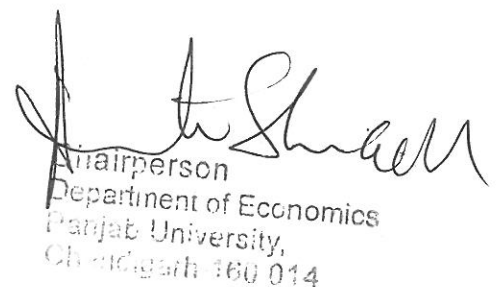 Chairperson
Department of Economics
Panjab University,
Chandigarh-160 014